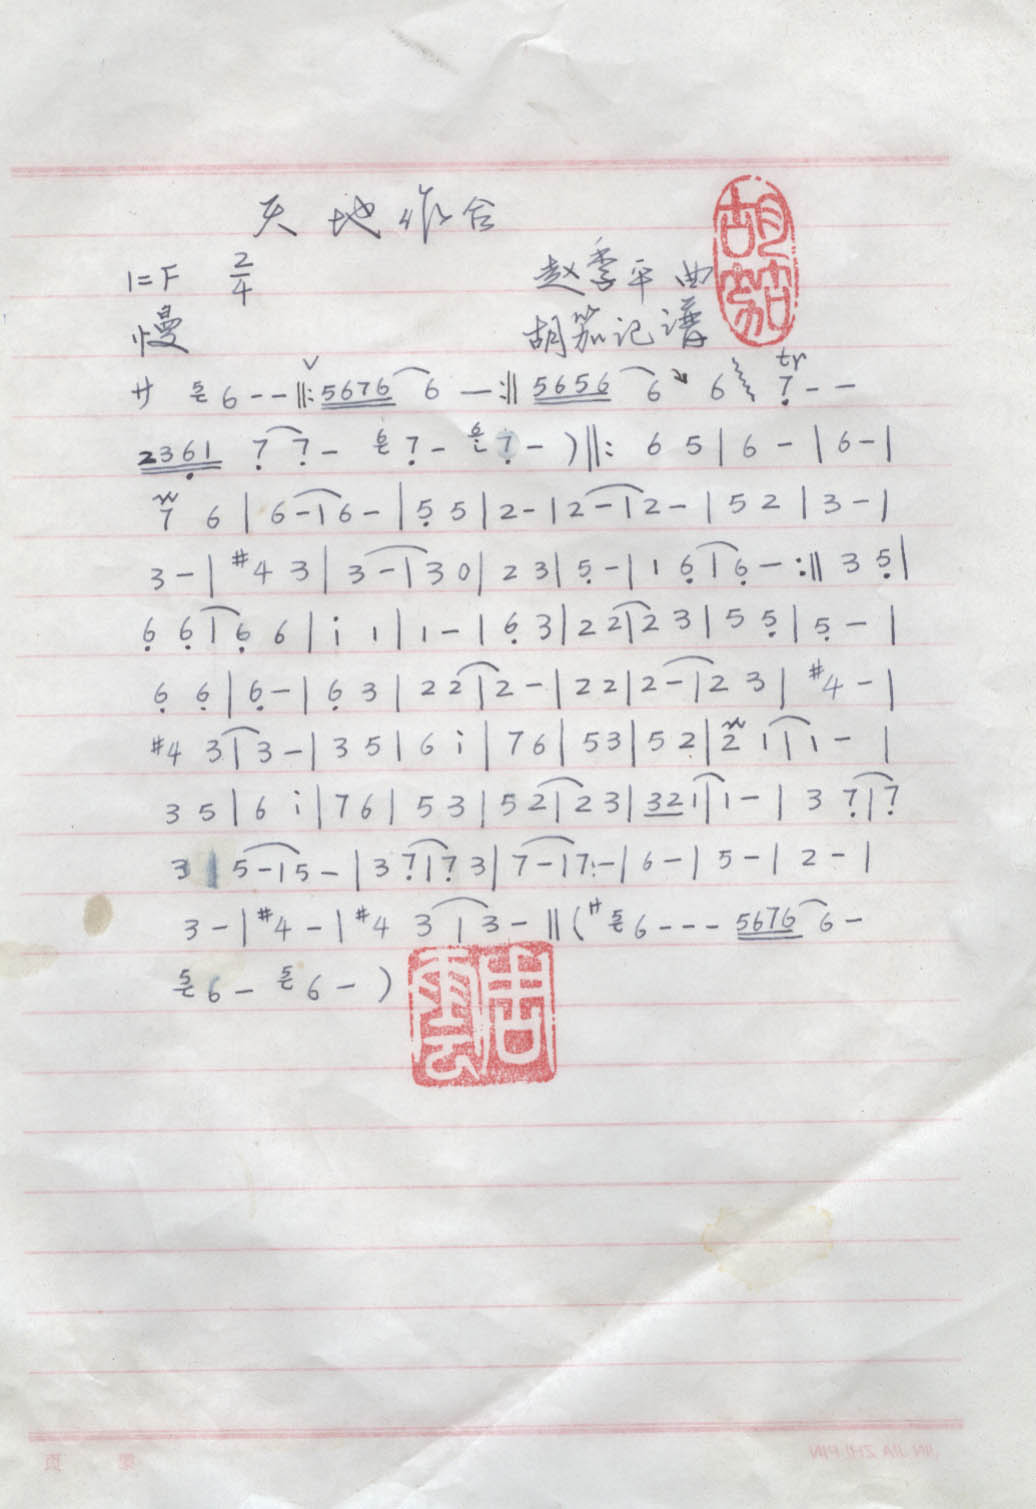 天地作合
1=F 2/4
赵季平 曲
慢
胡笳记谱
胡笳
廾 5 6 - - ‖: 5676 6 — :‖ 5656 6 ↘ 6 7 - -
tr
2361 7 7 - 6 7 - 6 i 7 - ) ‖: 6 5 | 6 - | 6 - |
7 6 | 6 - | 6 - | 5 5 | 2 - | 2 - | 2 - | 5 2 | 3 - |
3 - | #4 3 | 3 - | 3 0 | 2 3 | 5 - | 1 6 | 6 - :‖ 3 5 |
6 6 | 6 6 | i 1 | 1 - | 6 3 | 2 2 | 2 3 | 5 5 | 5 - |
6 6 | 6 - | 6 3 | 2 2 | 2 - | 2 2 | 2 - | 2 3 | #4 - |
#4 3 | 3 - | 3 5 | 6 i | 7 6 | 5 3 | 5 2 | 2 1 | 1 - |
3 5 | 6 i | 7 6 | 5 3 | 5 2 | 2 3 | 32 1 | 1 - | 3 7 | 7
3 | 5 - | 5 - | 3 7 | 7 3 | 7 - | 7 - | 6 - | 5 - | 2 - |
3 - | #4 - | #4 3 | 3 - ‖ ( サ 5 6 - - - 5676 6 -
5 6 - 5 6 - )